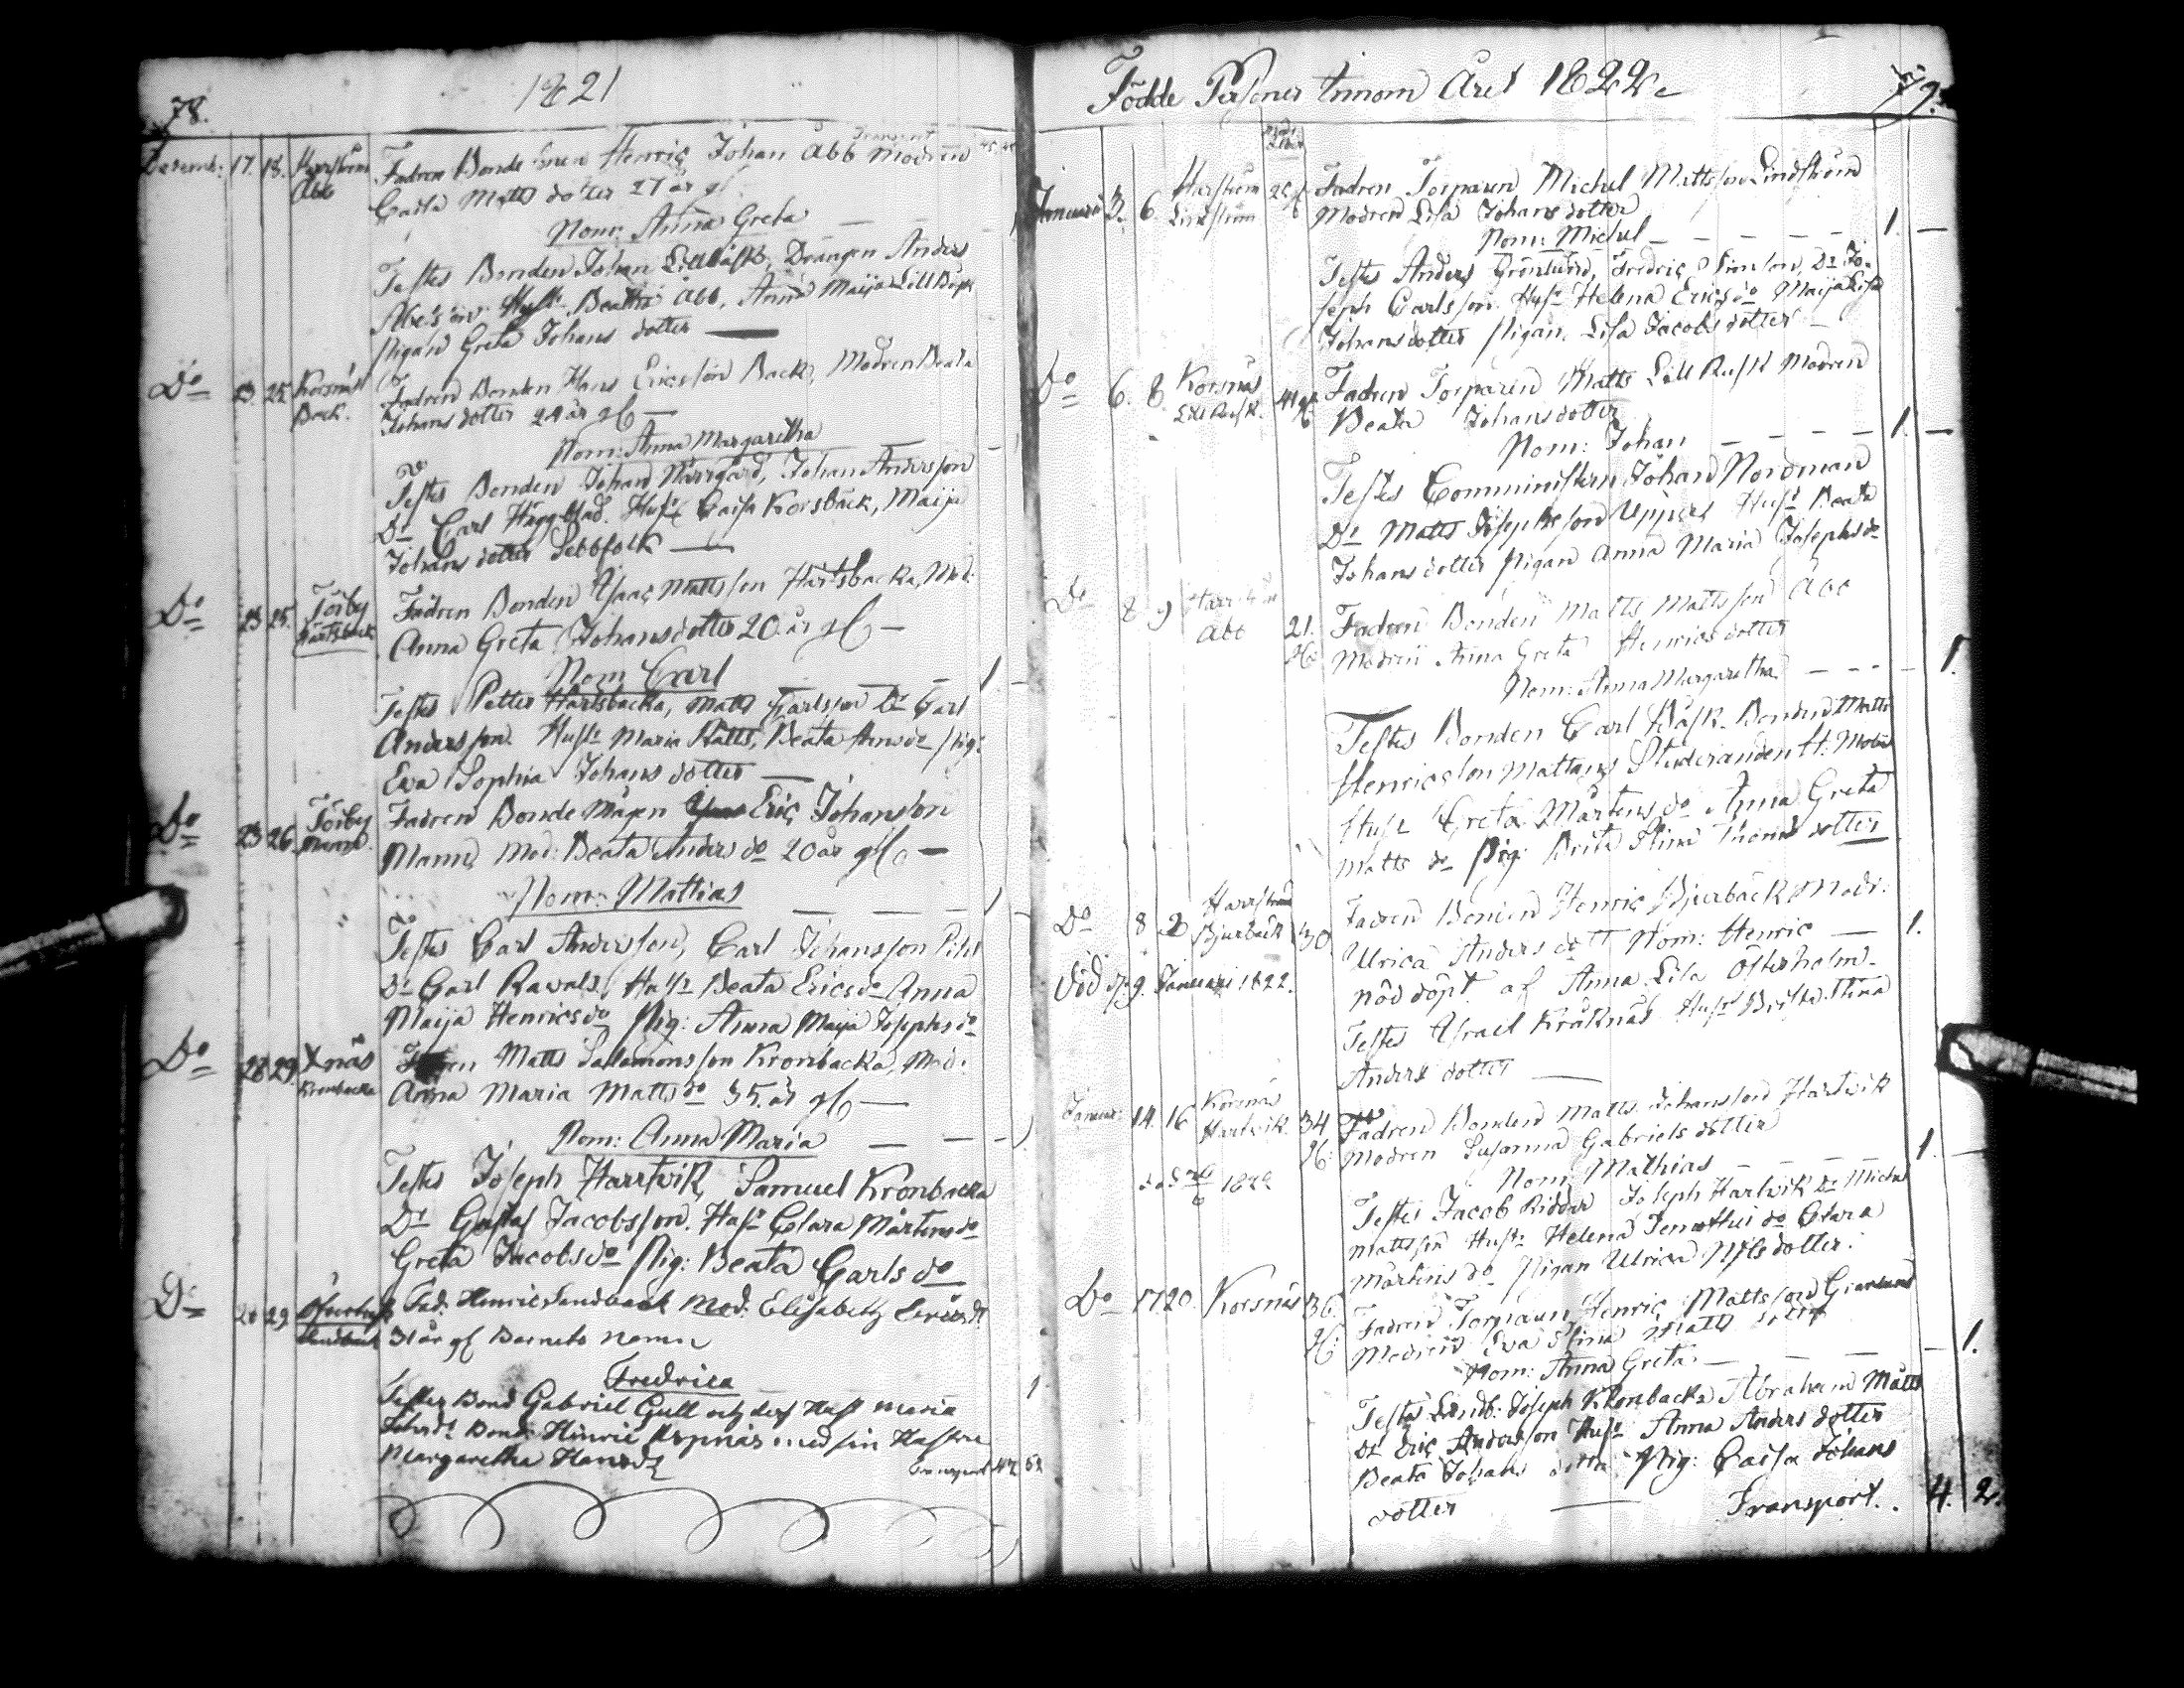 78.
1821
Decemb: 17. 18. Harrström Abb
Fadren Bonde Henric Johan Abb Modren
Caisa Matts dotter 27 år gl.
Nom: Anna Greta
Testes Bonden Johan Lillbåsk, Drängen Anders
Hust. Beatha Abb, Anna Maija Lillbåsk
Pigan Greta Johans dotter
Do 23 25 Korsnäs Back.
Fadren Bonden Hans Ericsson Back, Modren Beata
Johans dotter 24 år gl
Nom: Anna Margaretha
Testes Bonden Johan Norrgård, Johan Andersson
Dr Carl Häggblad. Hust. Caisa Korsbäck, Maija
Johans dotter Sebbfolk
Do 23 25. Töjby Härtsback
Fadren Bonden Isaac Mattsson Härtsbacka, Mod:
Anna Greta Johansdotter 20. år gl
Nom Carl 1
Testes Petter Härtsbacka, Matts Carlsson Dr Carl
Andersson. Hustr Maria Matts, Beata do Pig:
Eva Sophia Johans dotter
Do 23 26. Töjby Mann.
Fadren Bonde Mågen Eric Johansson
Mann, Mod: Beata Anders do 20 år gl.
Nom: Mattias 1
Testes Carl Andersson, Carl Johansson
Dr Carl Ravals, Hustr Beata Ericsdo Anna
Maija Henricsdo Pig: Anna Maija Josephsdo
Do 28 29. Xnäs Kronbacka
Matts Salomonsson Kronbacka, Mod.
Anna Maria Mattsdo 35. år gl
Nom: Anna Maria
Testes Joseph Harrtvik, Samuel Kronbacka
Dr Gustaf Jacobsson. Hustr Clara Mårtensdo
Greta Jacobsdo Pig: Beata Carls do
Do 29.
Fad. Henric Sandback Mod: Elisabeth
31 år gl Barnets namn
Fredrica 1
Testes Bond Gabriel Gull och dess Hust Maria
Bond: Hinric med sin Hustru
Margaretha Hansdr
Transport 47 52
Födde Personer innom Året 1822.
79.
Januari 3. 6. Harström Lindström 26
Fadren Torparen Michel Mattsson Lindström
Modren Lisa Johansdotter
Nom: Michel 1.
Testes Anders Grönlund, Fredric Simson, Dr Jo-
seph Carlsson. Hust. Helena Ericsdo Maija Lisa
Johansdotter Pigan, Lisa Jacobsdotter
Do 6. 8. Korsnäs Lill Rusk. 41
Fadren Torparen Matts Lill Rusk Modren
Beata Johansdotter
Nom: Johan 1.
Testes Comministern Johan Nordman
Dr Matts Josephsson Hust Beata
Johansdotter Pigan Anna Maria Josephsdo
Do 8 9 Harrström Abb 21.
Fadren Bonden Matts Mattsson Abb
Modren Anna Greta Henricsdotter
Nom: Anna Margaretha 1.
Testes Bonden Carl Båsk. Bonden Matts
Henricsson Mattans Studeranden H:
Hust Greta Mårtensdo Anna Greta
Matts do Pig: Brita Stina dotter
Do 8 Harrström Bjurbäck 30
Fadren Bonden Henric Bjurbäck Modr:
Ulrica Andersdott Nom: Henric 1.
Död d. 9 Januari 1822.
nöd döpt af Anna Lisa Österholm.
Testes Israel Kråknäs Hust Brita Stina
Anders dotter
Januar: 14. 16 Korsnäs Hartvik. 34
Fadren Bonden Matts Johansson Hartvik
Modren Susanna Gabriels dotter
Nom: Mathias 1.
Testes Jacob Riddar Joseph Hartvik Dr Michel
Mattsson Hustr Helena do Clara
Mårtens do Pigan Ulrica Nilsdotter.
Do 17 20. Korsnäs 36.
Fadren Torparen Henric Mattsson
Modren Eva Stina Matts dotter
Nom: Anna Greta 1.
Testes Joseph Kronbacka Abraham Matts
Dr Eric Andersson Hust Anna Anders dotter
Beata Johans dotter Pig: Caisa Johans
dotter
Transport. 4. 2.